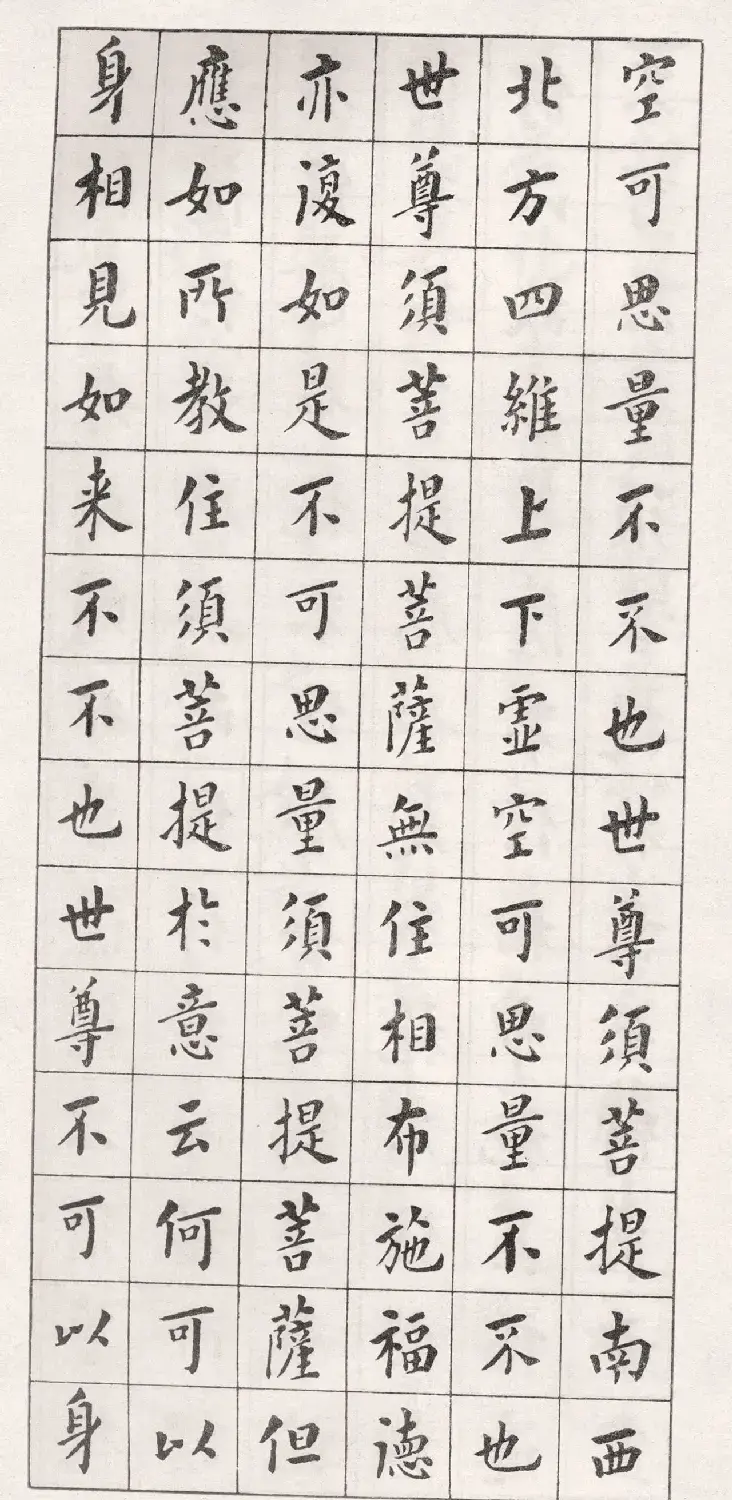 空可思量不不也世尊須菩提南西
北方四維上下虛空可思量不不也
世尊須菩提菩薩無住相布施福德
亦復如是不可思量須菩提菩薩但
應如所教住須菩提於意云何可以
身相見如来不不也世尊不可以身